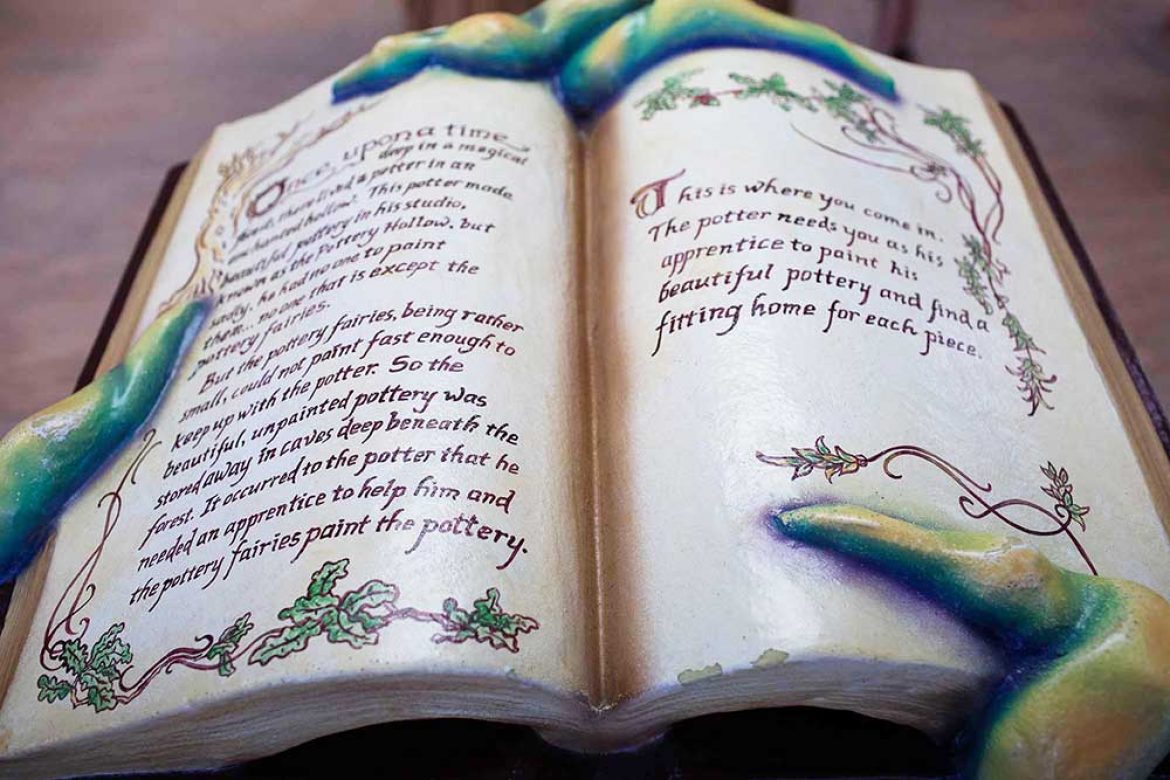 Once, upon a time
deep in a magical
land, there lived a potter in an
enchanted hollow. This potter made
beautiful pottery in his studio,
known as the Pottery Hollow, but
sadly, he had no one to paint
them... no one that is except the
pottery fairies.
But the pottery fairies, being rather
small, could not paint fast enough to
keep up with the potter. So the
beautiful, unpainted pottery was
stored away in caves deep beneath the
forest. It occurred to the potter that he
needed an apprentice to help him and
the pottery fairies paint the pottery.
This is where you come in.
The potter needs you as his
apprentice to paint his
beautiful pottery and find a
fitting home for each piece.